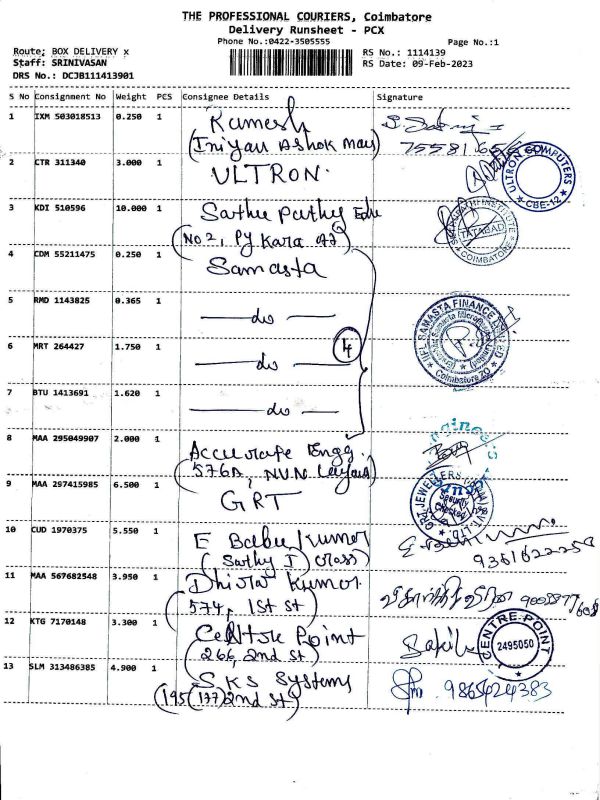 THE PROFESSIONAL COURIERS, Coimbatore
Delivery Runsheet - PCX
Phone No.:0422-3505555
Page No.:1
Route: BOX DELIVERY x
RS No.: 1114139
Staff: SRINIVASAN
RS Date: 09-Feb-2023
DRS No.: DCJB111413901
S No Consignment No Weight PCS Consignee Details Signature
1 IXM 503018513 0.250 1 Ramesh
(Iniyan Ashok Mau)
2 CTR 311340 3.000 1 ULTRON
ULTRON COMPUTERS
CBE-12
3 KDI 510596 10.000 1 Sathu Pathy Edu
(No 2, Py Kara
INSTITUTE
TATABAD
COIMBATORE
4 CDM 55211475 0.250 1 Samasta
5 RMD 1143825 0.365 1 — do —
IIFL SAMASTA FINANCE LIMITED
Coimbatore
6 MRT 264427 1.750 1 — do — 4
7 BTU 1413691 1.620 1 — do —
8 MAA 295049907 2.000 1 Accurate Engg.
(576A, N.V.N. Layout)
9 MAA 297415985 6.500 1 GRT
GRT JEWELLERS
Security
Checked
10 CUD 1970375 5.550 1 E Babu Kumar
(Sathy I cross)
11 MAA 567682548 3.950 1 Dhiraj Kumar
(574, 1st st)
12 KTG 7170148 3.300 1 Centre Point
(266, 2nd st)
CENTRE POINT
2495050
13 SLM 313486385 4.900 1 SKS Systems
9865424383
(195 (137) 2nd st)